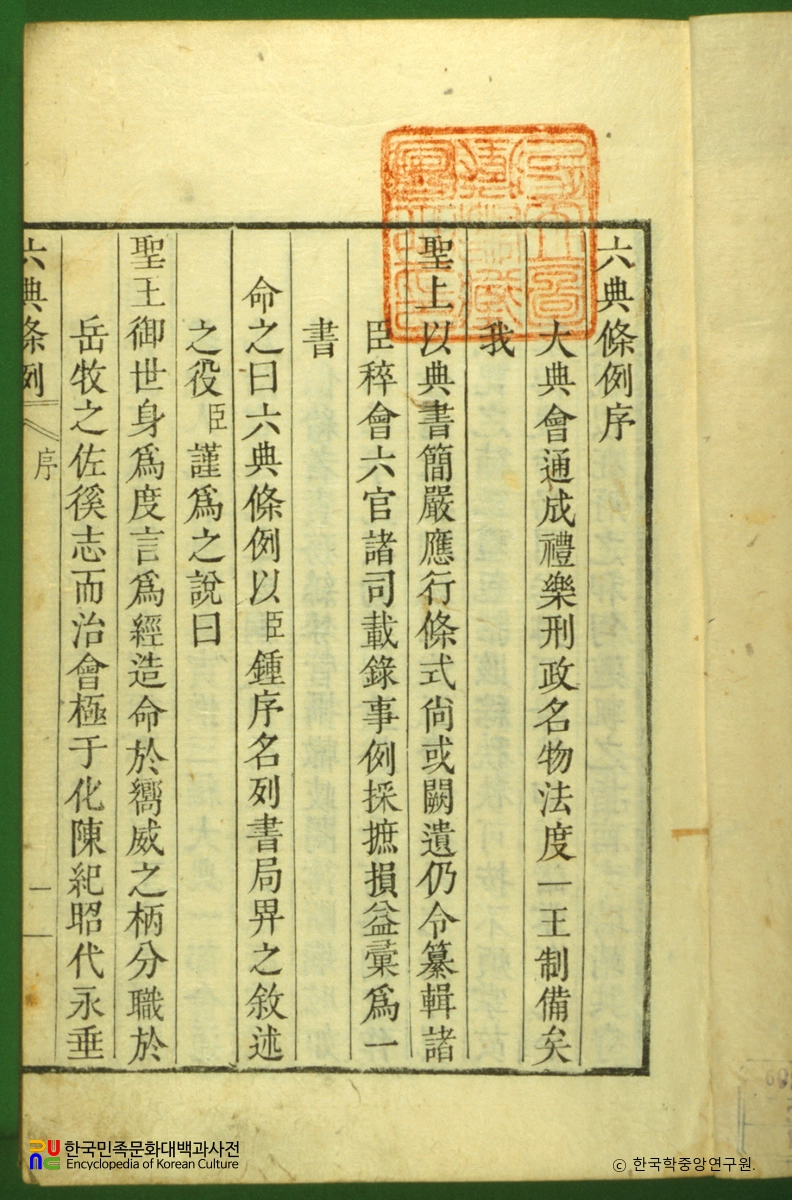 六典條例序
大典會通成禮樂刑政名物法度一王制備矣
我
聖上以典書簡嚴應行條式尙或闕遺仍令纂輯諸
臣稡會六官諸司載錄事例採摭損益彙爲一
書
命之曰六典條例以臣鍾序名列書局畀之敘述
之役臣謹爲之說曰
聖王御世身爲度言爲經造命於嚮威之柄分職於
岳牧之佐徯志而治會極于化陳紀昭代永垂
六典條例
序
一
한국민족문화대백과사전
Encyclopedia of Korean Culture
© 한국학중앙연구원.